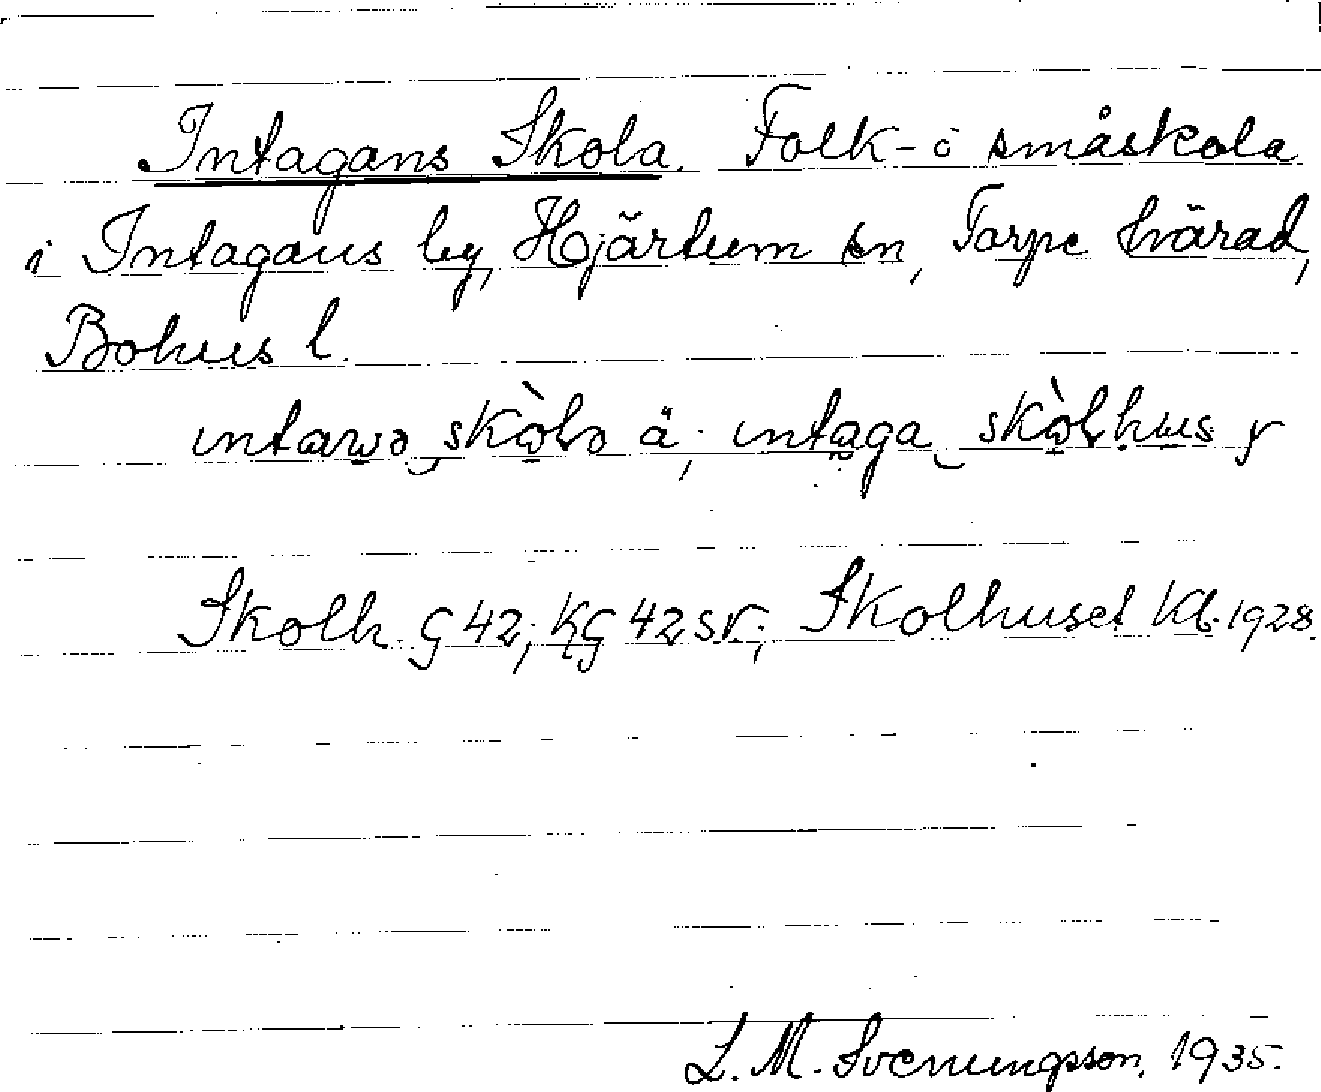 Intagans Skola. Folk- o småskola
i Intagans by, Hjärtum sn, Torpe härad,
Bohus l.
intawə skòlə ä; intaga skòlhus y
Skolh. G 42; KG 42 SV; Skolhuset Kb. 1928.
L. M. Svenungsson, 1935.